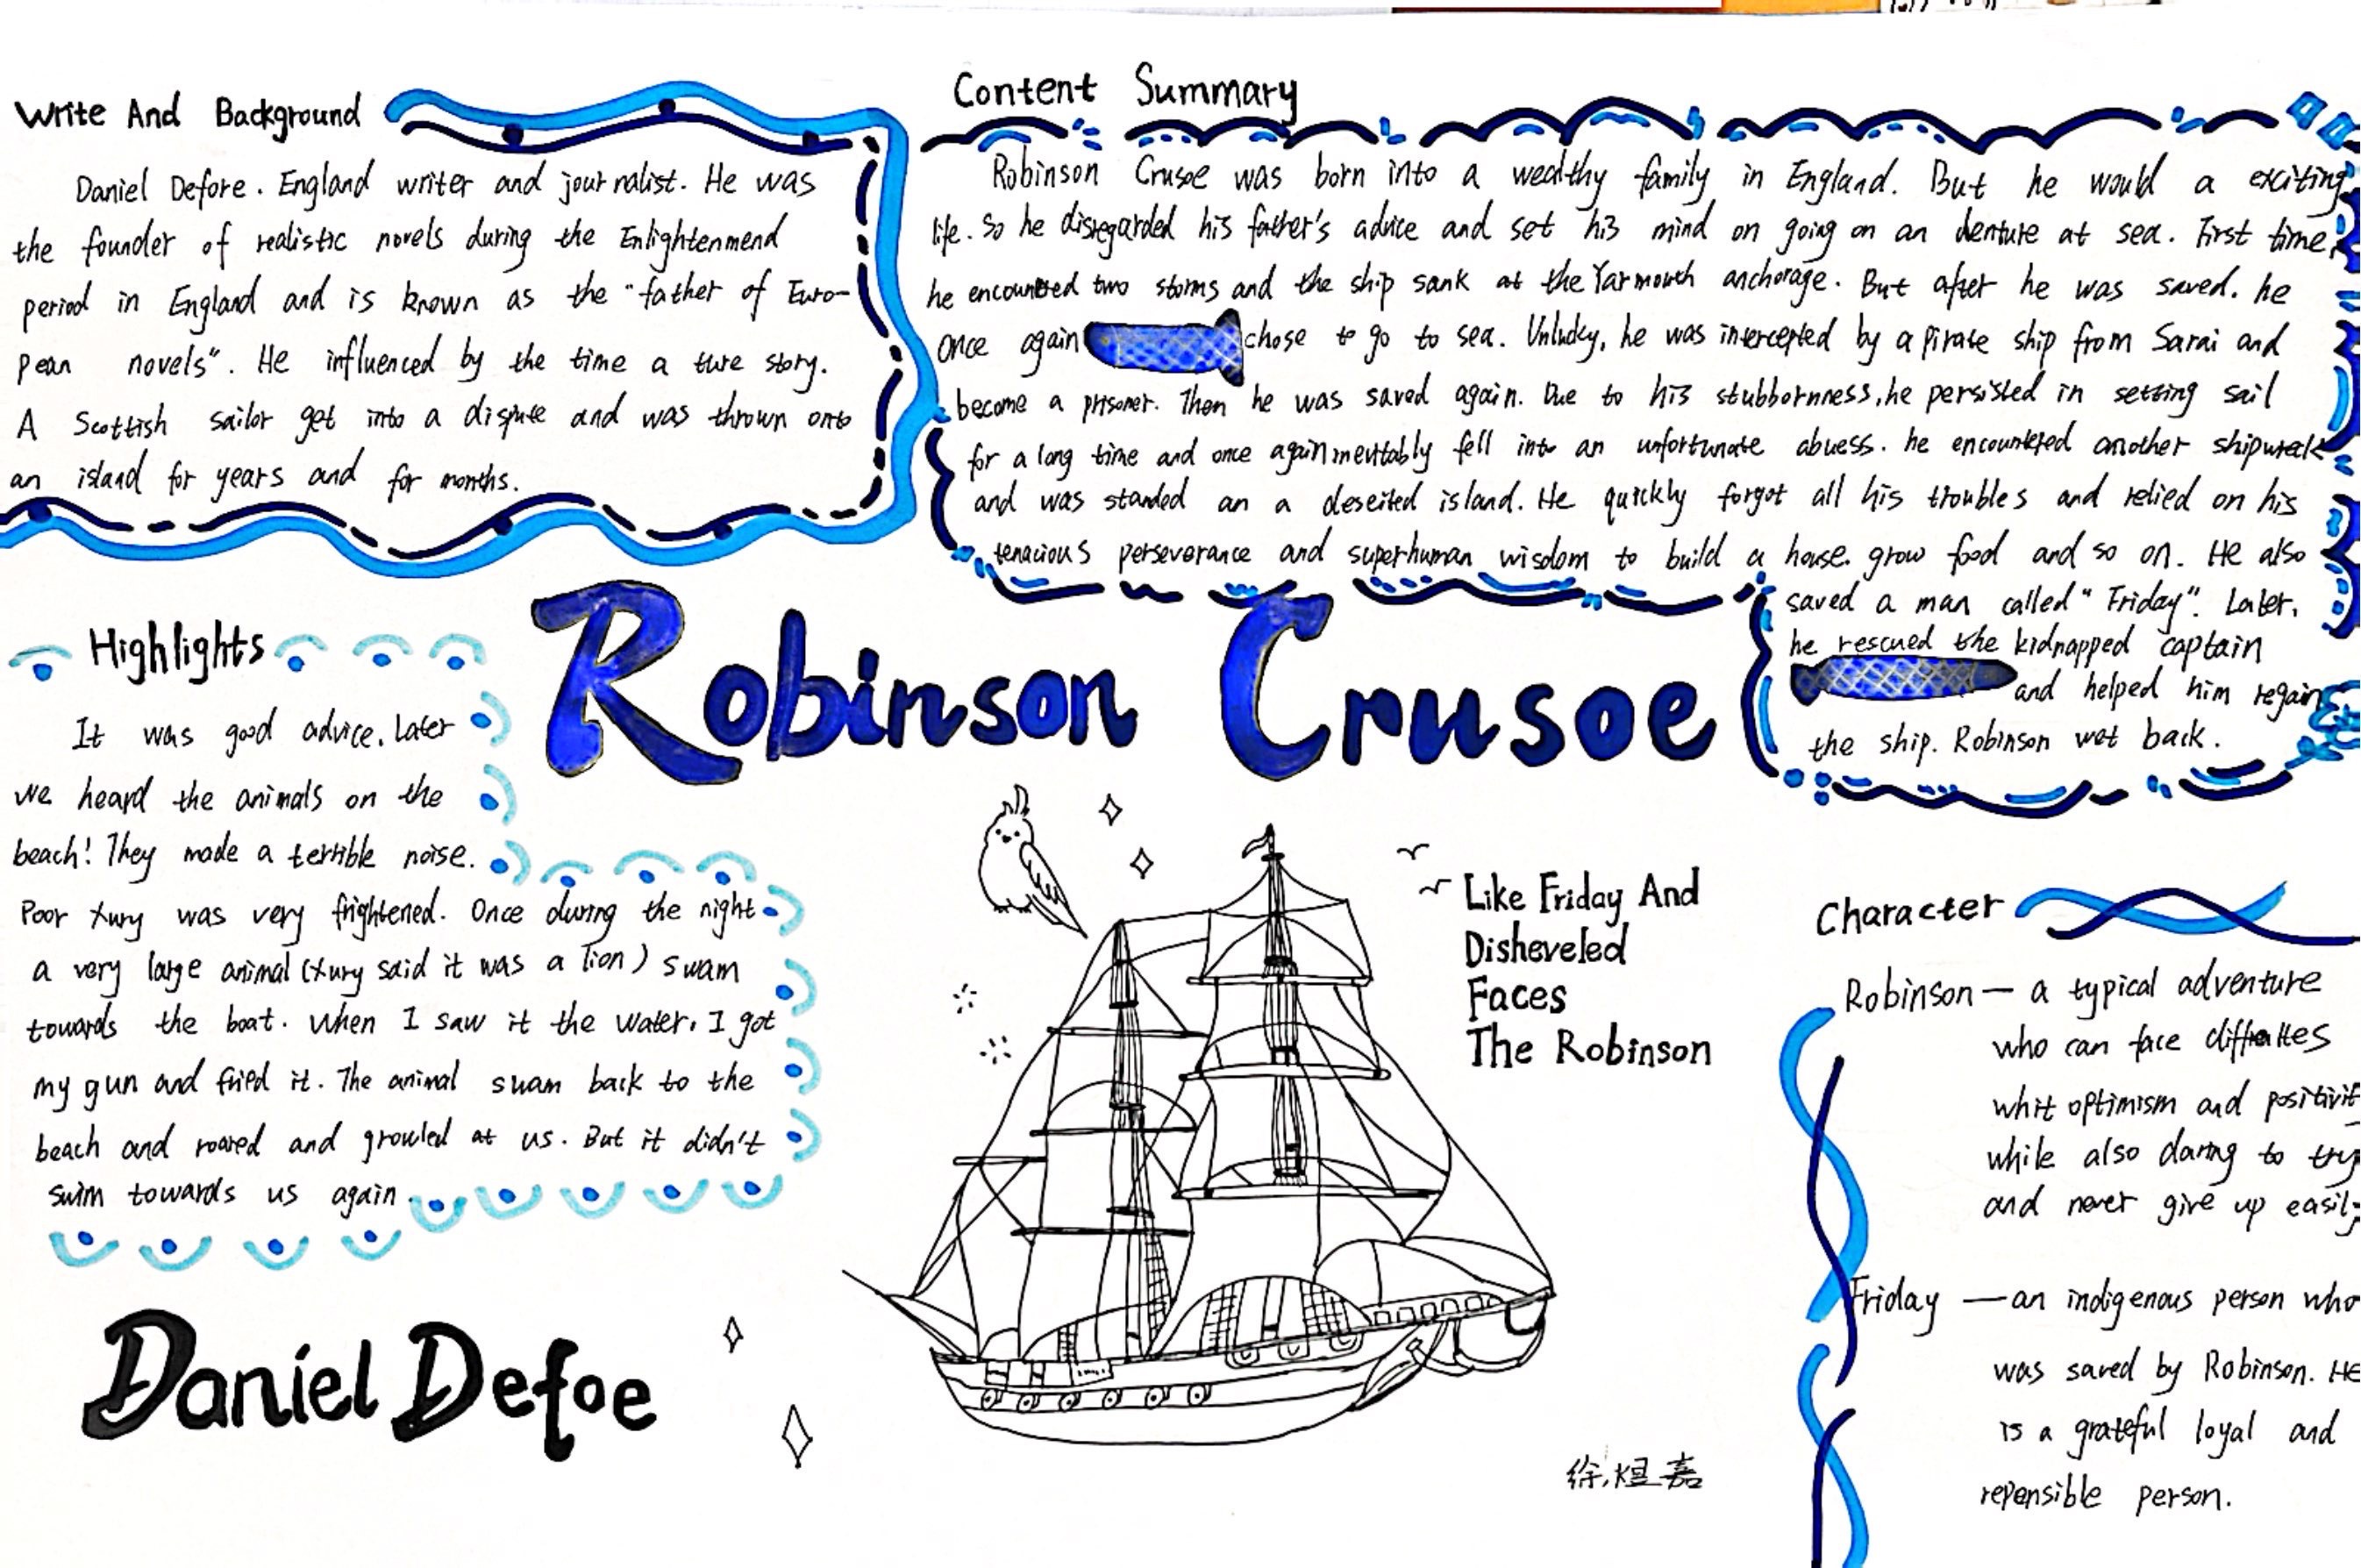 Write And Background
Daniel Defore. England writer and journalist. He was
the founder of realistic novels during the Enlightenmend
period in England and is known as the "father of Euro-
pean novels". He influenced by the time a ture story.
A Scottish sailor get into a dispute and was thrown onto
an island for years and for months.
Content Summary
Robinson Crusoe was born into a wealthy family in England. But he would a exciting
life. So he disregarded his father's advice and set his mind on going on an denture at sea. First time,
he encounted two storms and the ship sank at the Yarmouth anchorage. But after he was saved. he
once again chose to go to sea. Unlucky, he was intercepted by a pirate ship from Sarai and
become a prisoner. Then he was saved again. Due to his stubbornness, he persisted in setting sail
for a long time and once again inevitably fell into an unfortunate abuess. he encountered another shipwreck
and was standed an a deseited island. He quickly forgot all his troubles and relied on his
tenacious perseverance and superhuman wisdom to build a house. grow food and so on. He also
saved a man called "Friday". Later,
he rescued the kidnapped captain
and helped him regain
the ship. Robinson wet back.
Robinson Crusoe
Highlights
It was good advice. Later
we heard the animals on the
beach! They made a terrible noise.
Poor Xury was very frightened. Once during the night
a very large animal (Xury said it was a lion) swam
towards the boat. When I saw it the water, I got
my gun and fried it. The animal swam back to the
beach and roared and growled at us. But it didn't
swim towards us again.
Daniel Defoe
Like Friday And
Disheveled
Faces
The Robinson
徐煜嘉
Character
Robinson — a typical adventure
who can face
whit optimism and positivit
while also daring to try
and never give up easily
Friday — an indigenous person who
was saved by Robinson. He
is a grateful loyal and
repensible person.